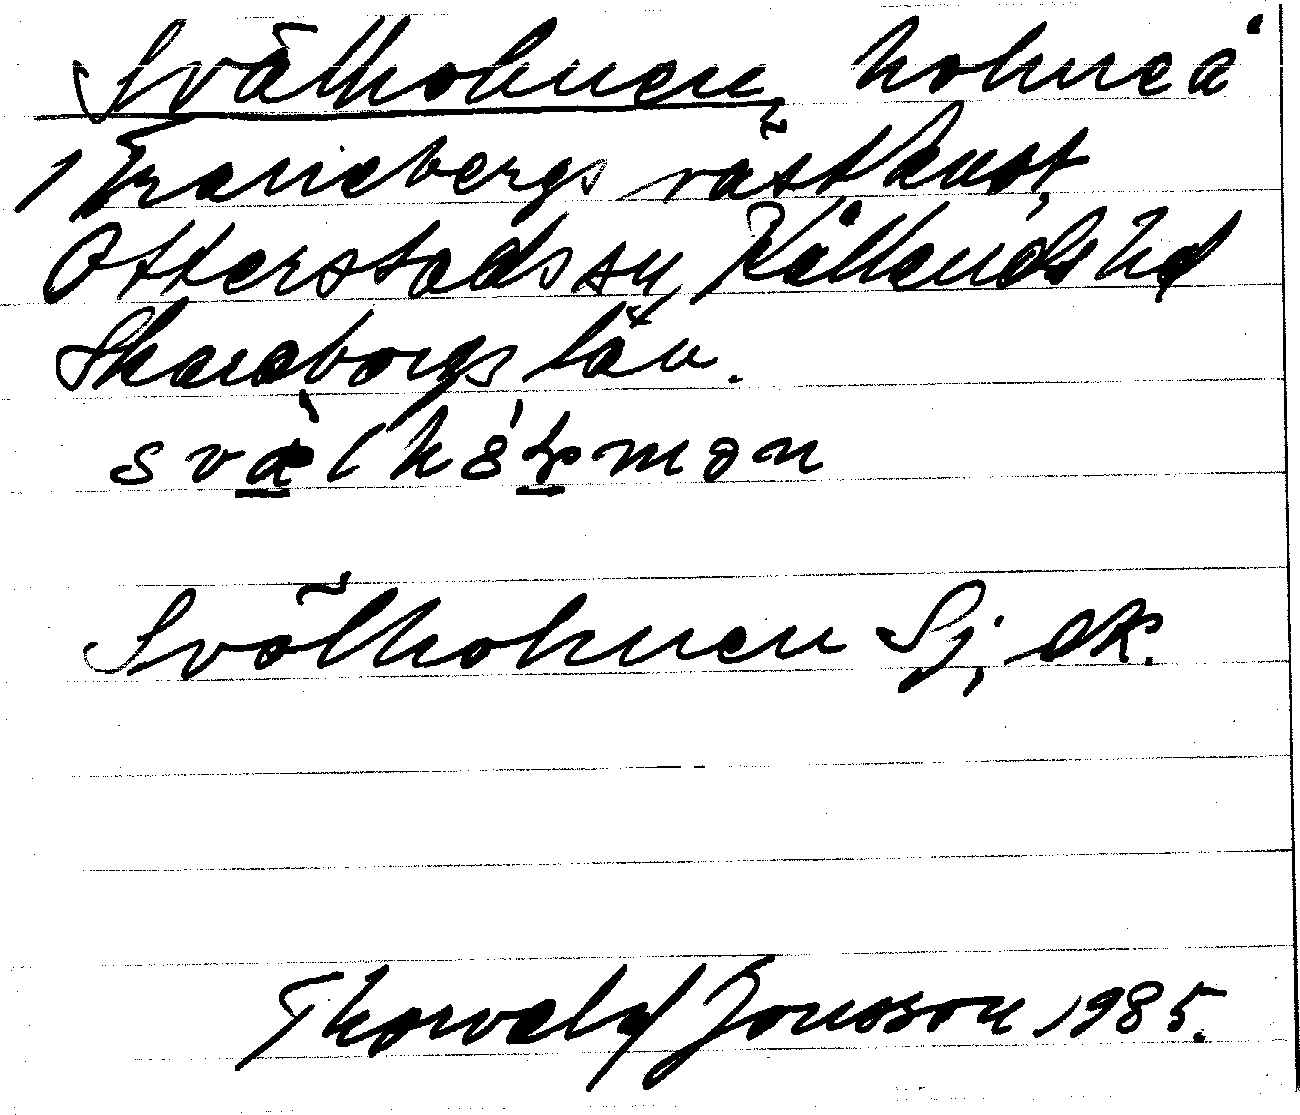 Svälholmen, holme å
Tranebergs västkust,
Otterstads sn, Kållands hd
Skaraborgs län.
Svälholmen Sj, ek.
Thorvald Jonsson 1985.